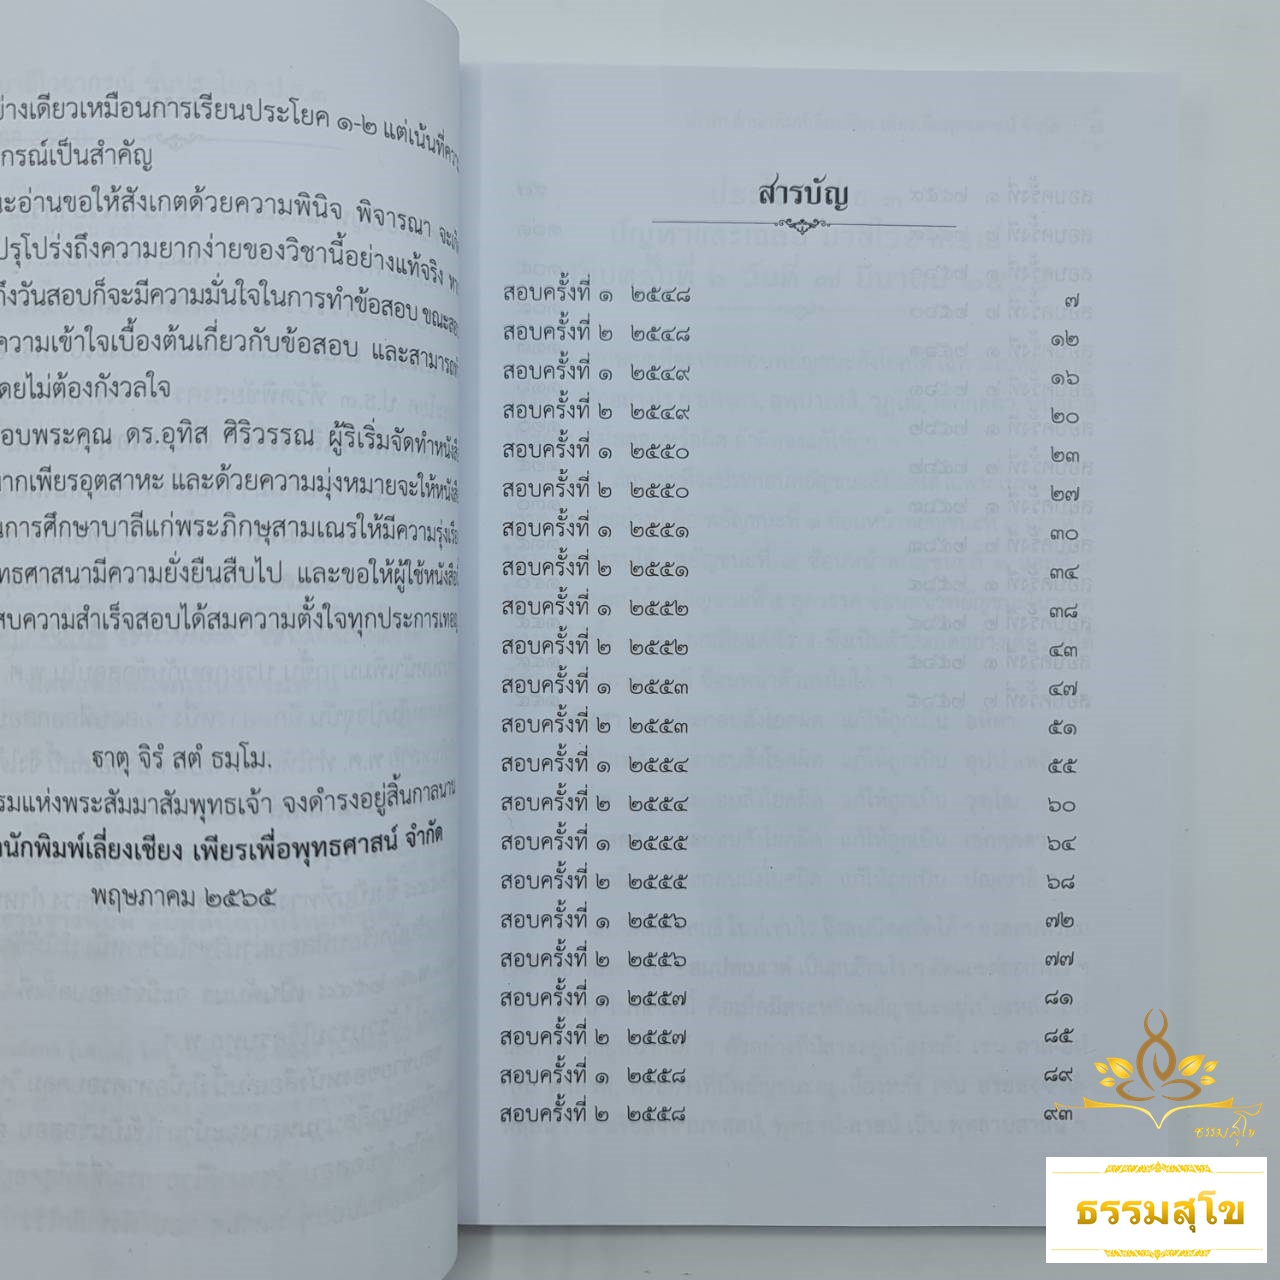 ย่างเดียวเหมือนการเรียนประโยค ๑-๒ แต่เน้นที่
กรณ์เป็นสำคัญ
อ่านขอให้สังเกตด้วยความพินิจ พิจารณา
ปรุโปร่งถึงความยากง่ายของวิชานี้อย่างแท้จริง
ถึงวันสอบก็จะมีความมั่นใจในการทำข้อสอบ
ความเข้าใจเบื้องต้นเกี่ยวกับข้อสอบ และสามารถ
ดยไม่ต้องกังวลใจ
อบพระคุณ ดร.อุทิส ศิริวรรณ ผู้ริเริ่มจัดทำ
ากเพียรอุตสาหะ และด้วยความมุ่งหมายจะให้
นการศึกษาบาลีแก่พระภิกษุสามเณรให้มีความ
ทธศาสนามีความยั่งยืนสืบไป และขอให้ผู้ใช้
สบความสำเร็จสอบได้สมความตั้งใจทุกประการ
ธาตุ จิรํ สตํ ธมฺโม.
รมแห่งพระสัมมาสัมพุทธเจ้า จงดำรงอยู่สิ้นกาลนาน
นักพิมพ์เลี่ยงเชียง เพียรเพื่อพุทธศาสน์ จำกัด
พฤษภาคม ๒๕๖๕
สารบัญ
สอบครั้งที่ ๑ ๒๕๔๘ ๗
สอบครั้งที่ ๒ ๒๕๔๘ ๑๒
สอบครั้งที่ ๑ ๒๕๔๙ ๑๖
สอบครั้งที่ ๒ ๒๕๔๙ ๒๐
สอบครั้งที่ ๑ ๒๕๕๐ ๒๓
สอบครั้งที่ ๒ ๒๕๕๐ ๒๗
สอบครั้งที่ ๑ ๒๕๕๑ ๓๐
สอบครั้งที่ ๒ ๒๕๕๑ ๓๔
สอบครั้งที่ ๑ ๒๕๕๒ ๓๘
สอบครั้งที่ ๒ ๒๕๕๒ ๔๓
สอบครั้งที่ ๑ ๒๕๕๓ ๔๗
สอบครั้งที่ ๒ ๒๕๕๓ ๕๑
สอบครั้งที่ ๑ ๒๕๕๔ ๕๕
สอบครั้งที่ ๒ ๒๕๕๔ ๖๐
สอบครั้งที่ ๑ ๒๕๕๕ ๖๔
สอบครั้งที่ ๒ ๒๕๕๕ ๖๘
สอบครั้งที่ ๑ ๒๕๕๖ ๗๒
สอบครั้งที่ ๒ ๒๕๕๖ ๗๗
สอบครั้งที่ ๑ ๒๕๕๗ ๘๑
สอบครั้งที่ ๒ ๒๕๕๗ ๘๕
สอบครั้งที่ ๑ ๒๕๕๘ ๘๙
สอบครั้งที่ ๒ ๒๕๕๘ ๙๓
ธรรมสุโข
ธรรมสุโข